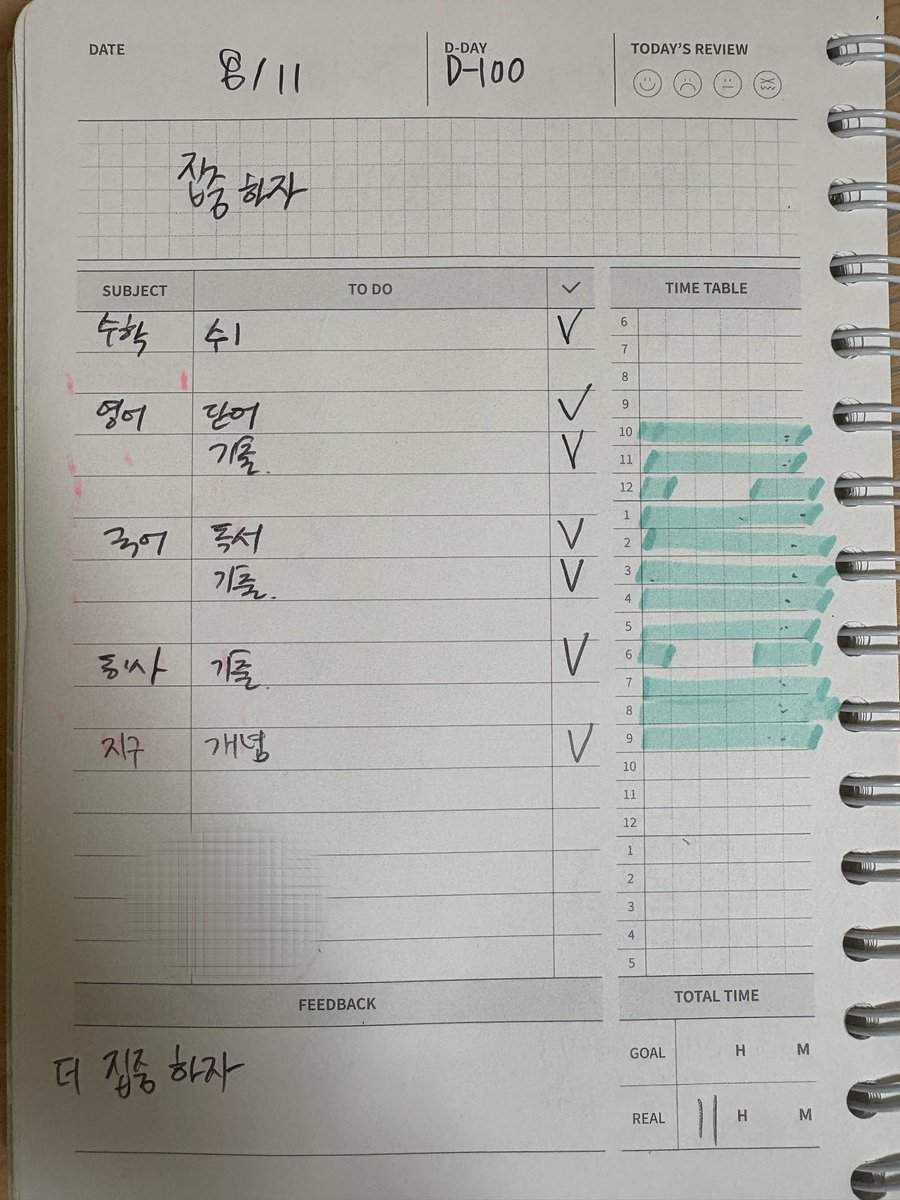 DATE 8/11 D-DAY D-100 TODAY'S REVIEW
집중 하자
SUBJECT TO DO ✓ TIME TABLE
수학 수1 V
영어 단어 V
기출. V
국어 독서 V
기출. V
동사 기출. V
지구 개념 V
6
7
8
9
10
11
12
1
2
3
4
5
6
7
8
9
10
11
12
1
2
3
4
5
FEEDBACK
더 집중 하자
TOTAL TIME
GOAL H M
REAL 11 H M